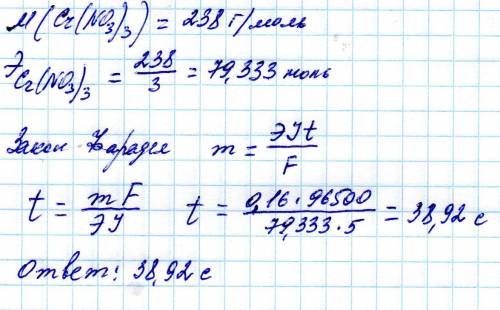 M(Cr(NO₃)₃) = 238 г/моль
Э Cr(NO₃)₃ = 238/3 = 79,333 моль
Закон Фарадея m = ЭIt/F
t = mF/ЭI t = 0,16·96500/79,333·5 = 38,92 с
Ответ: 38,92 с